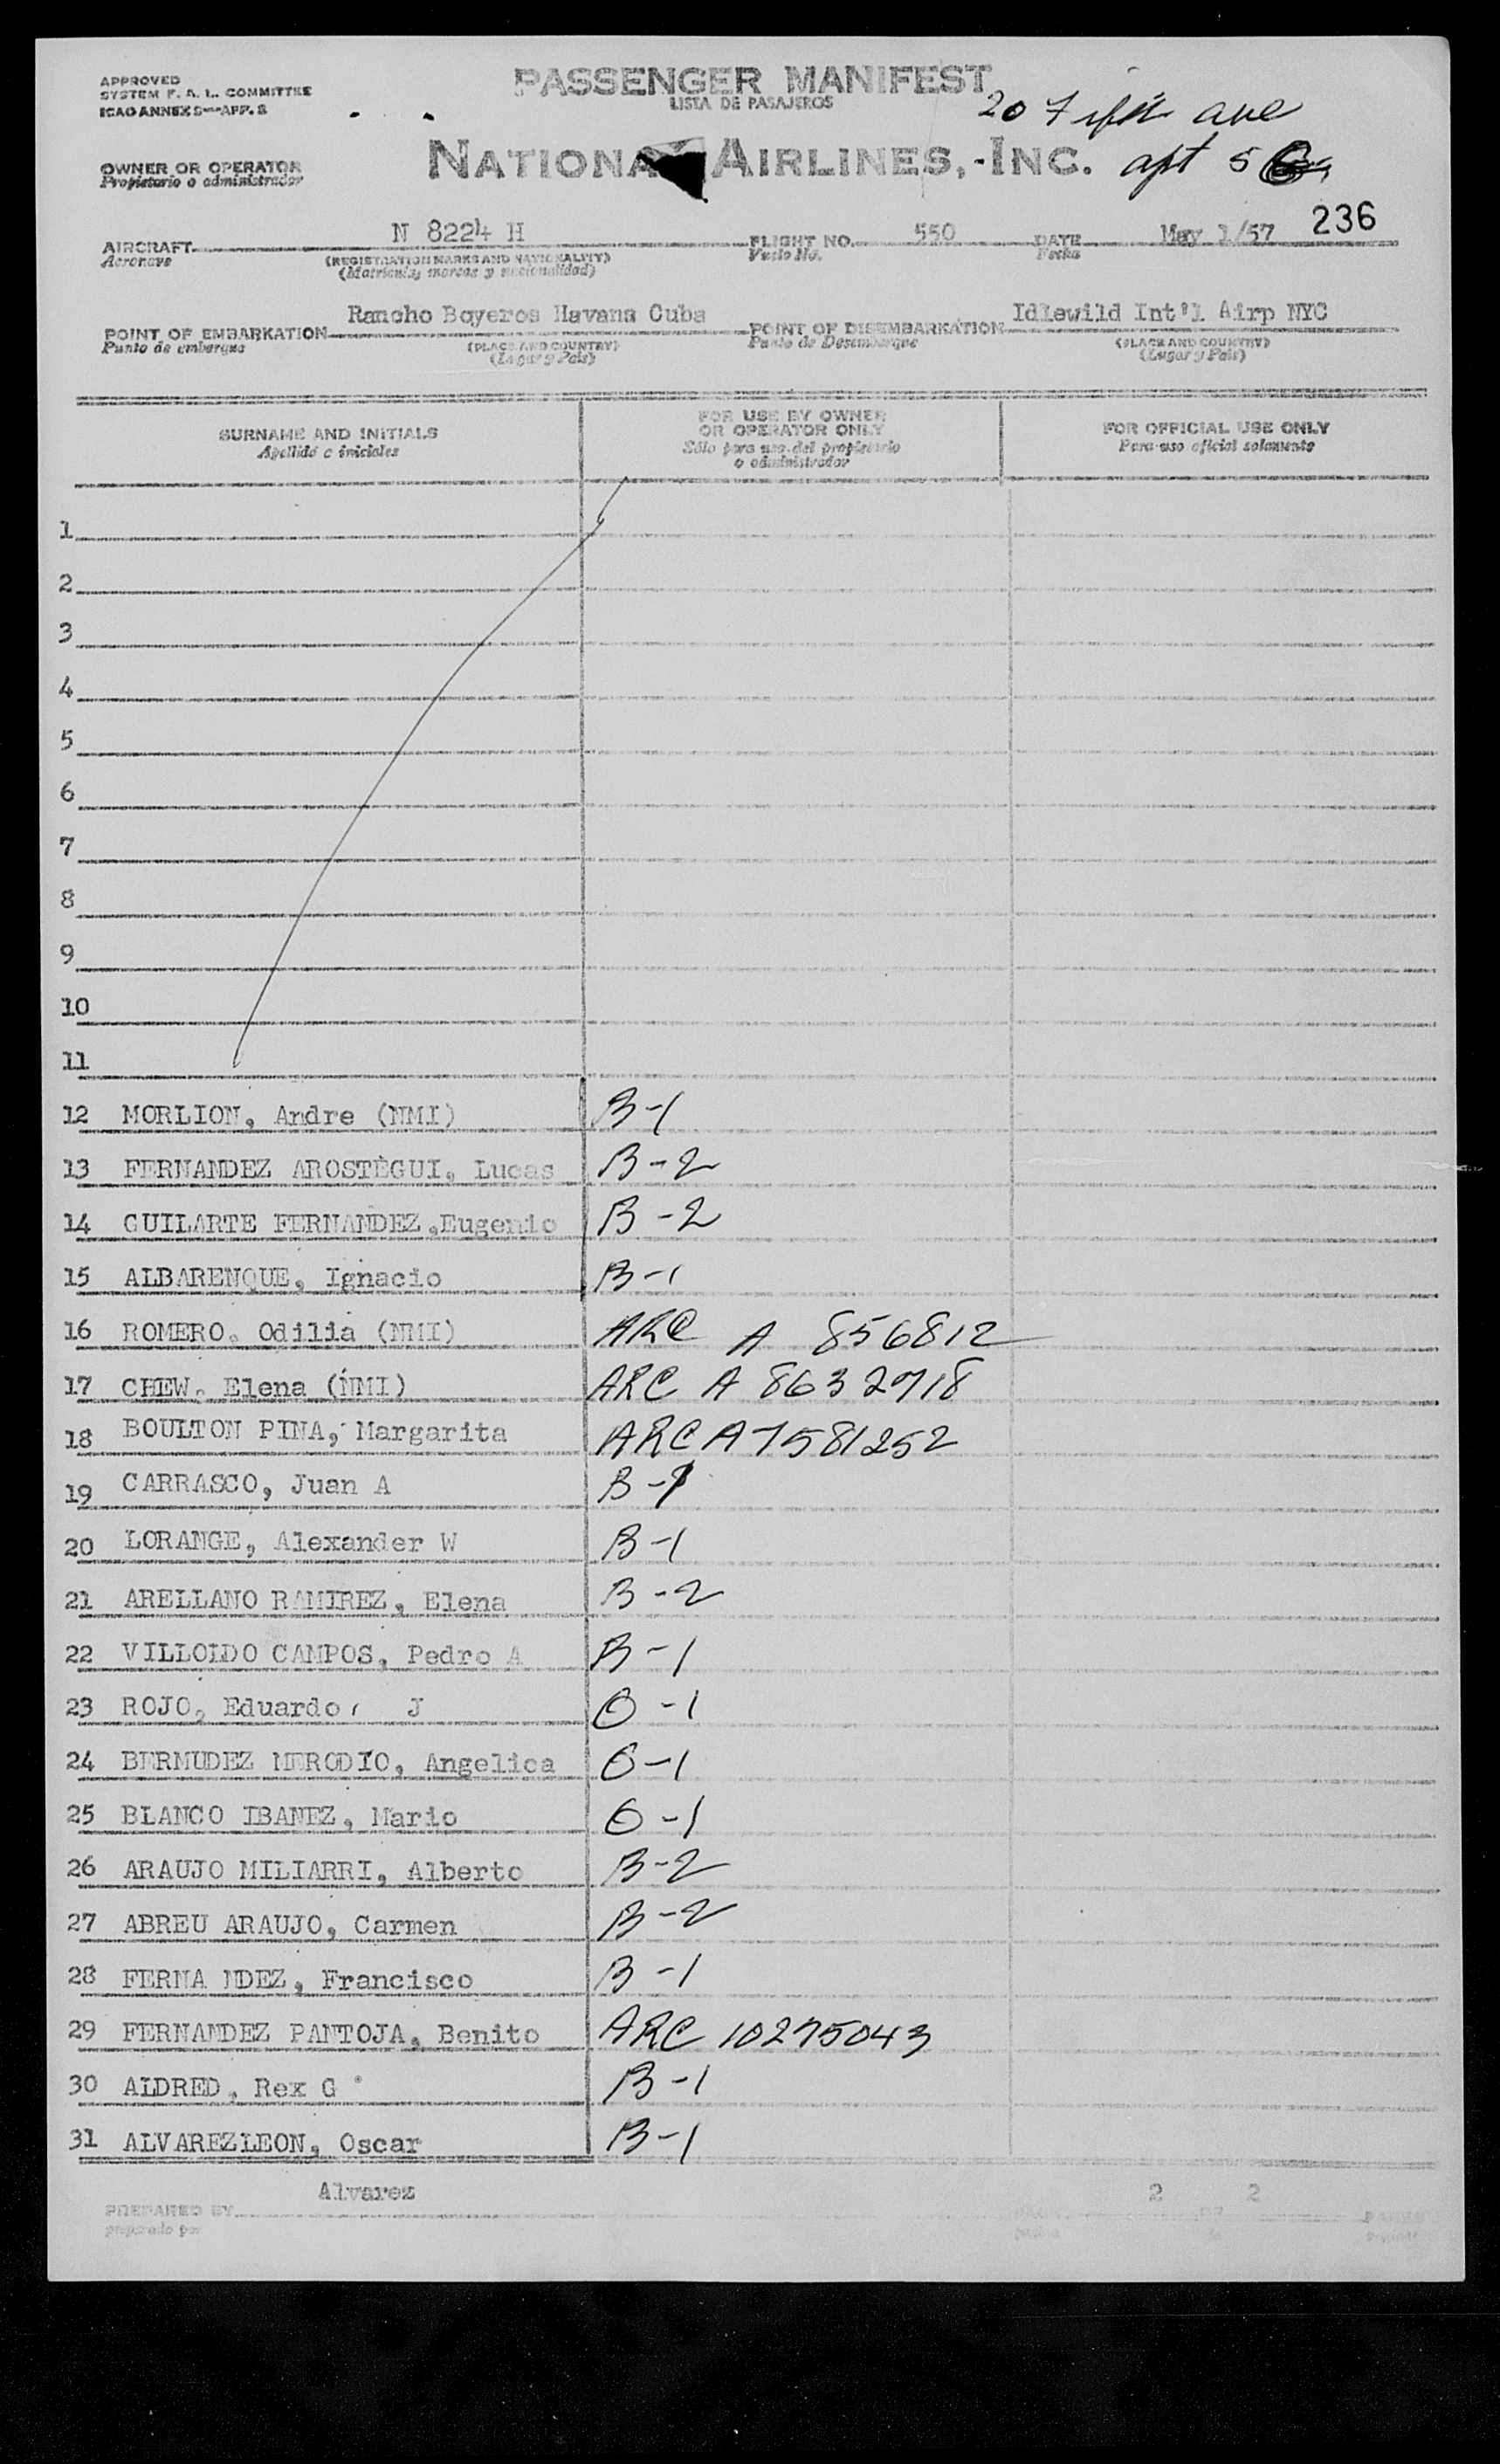 APPROVED
SYSTEM F. A. L. COMMITTEE
ICAO ANNEX 9—APP. 3
PASSENGER MANIFEST
LISTA DE PASAJEROS
20 Fifth ave
OWNER OR OPERATOR
Propietario o administrador
NATIONAL AIRLINES, INC.
apt 5
236
AIRCRAFT N 8224 H FLIGHT NO. 550 DATE May 1/57
Aeronave (REGISTRATION MARKS AND NATIONALITY) Vuelo No. Fecha
(Matricula, marcas y nacionalidad)
POINT OF EMBARKATION Rancho Boyeros Havana Cuba POINT OF DISEMBARKATION Idlewild Int'l Airp NYC
Punto de embarque (PLACE AND COUNTRY) Punto de Desembarque (PLACE AND COUNTRY)
(Lugar y Pais) (Lugar y Pais)
SURNAME AND INITIALS FOR USE BY OWNER OR OPERATOR ONLY FOR OFFICIAL USE ONLY
Apellido e iniciales Sólo para uso del propietario o administrador Para uso oficial solamente
1
2
3
4
5
6
7
8
9
10
11
12 MORLION, Andre (NMI) B-1
13 FERNANDEZ AROSTEGUI, Lucas B-2
14 GUILARTE FERNANDEZ,Eugenio B-2
15 ALBARENQUE, Ignacio B-1
16 ROMERO, Odilia (NMI) ARC A 856812
17 CHEW, Elena (NMI) ARC A 8632718
18 BOULTON PINA, Margarita ARC A7581252
19 CARRASCO, Juan A B-1
20 LORANGE, Alexander W B-1
21 ARELLANO RAMIREZ, Elena B-2
22 VILLOLDO CAMPOS, Pedro A B-1
23 ROJO, Eduardo, J O-1
24 BERMUDEZ MERODIO, Angelica O-1
25 BLANCO IBANEZ, Mario O-1
26 ARAUJO MILIARRI, Alberto B-2
27 ABREU ARAUJO, Carmen B-2
28 FERNA NDEZ, Francisco B-1
29 FERNANDEZ PANTOJA, Benito ARC 10275043
30 ALDRED, Rex G B-1
31 ALVAREZLEON, Oscar B-1
PREPARED BY Alvarez 2 2
preparado por